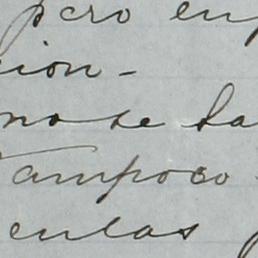 pero en
ion-
no se sa
Tampoco
culas